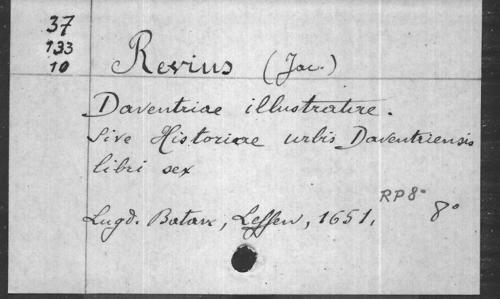 37
133
10
Revius (Jac.)
Daventriae illustratae.
Sive Historiae urbis Daventriensis
libri sex
RP8°
Lugd. Batav, Leffen, 1651, 8°